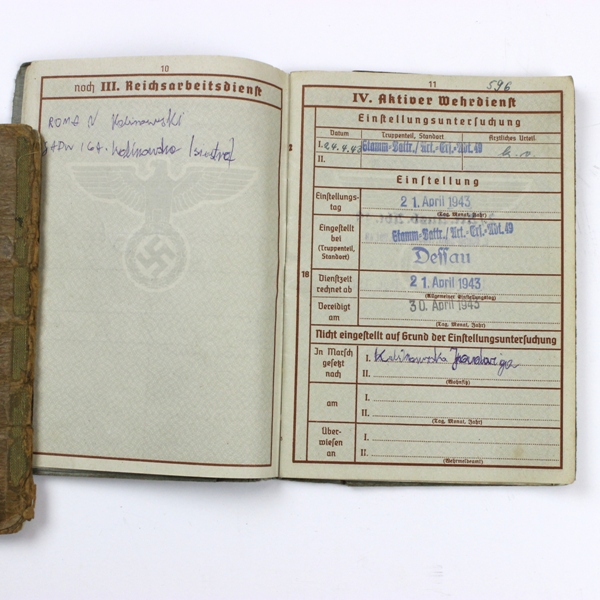 10
noch III. Reichsarbeitsdienst
ROMAN Kalinowski
Kalinowska
11
596
IV. Aktiver Wehrdienst
Einstellungsuntersuchung
Datum Truppenteil, Standort Ärztliches Urteil
I. Stamm-Battr./Art.-Ers.-Abt. 49
II.
Einstellung
Einstellungs-
tag
21. April 1943
(Tag, Monat, Jahr)
Eingestellt
bei
(Truppenteil,
Standort)
Stamm-Battr./Art.-Ers.-Abt. 49
Dessau
18
Dienstzeit
rechnet ab
21. April 1943
(Allgemeiner Einstellungstag)
Vereidigt
am
30. April 1943
(Tag, Monat, Jahr)
Nicht eingestellt auf Grund der Einstellungsuntersuchung
In Marsch
gesetzt
nach
I. Kalinowska
II.
(Wohnsitz)
am
I.
II.
(Tag, Monat, Jahr)
Über-
wiesen
an
I.
II.
(Wehrmeldeamt)